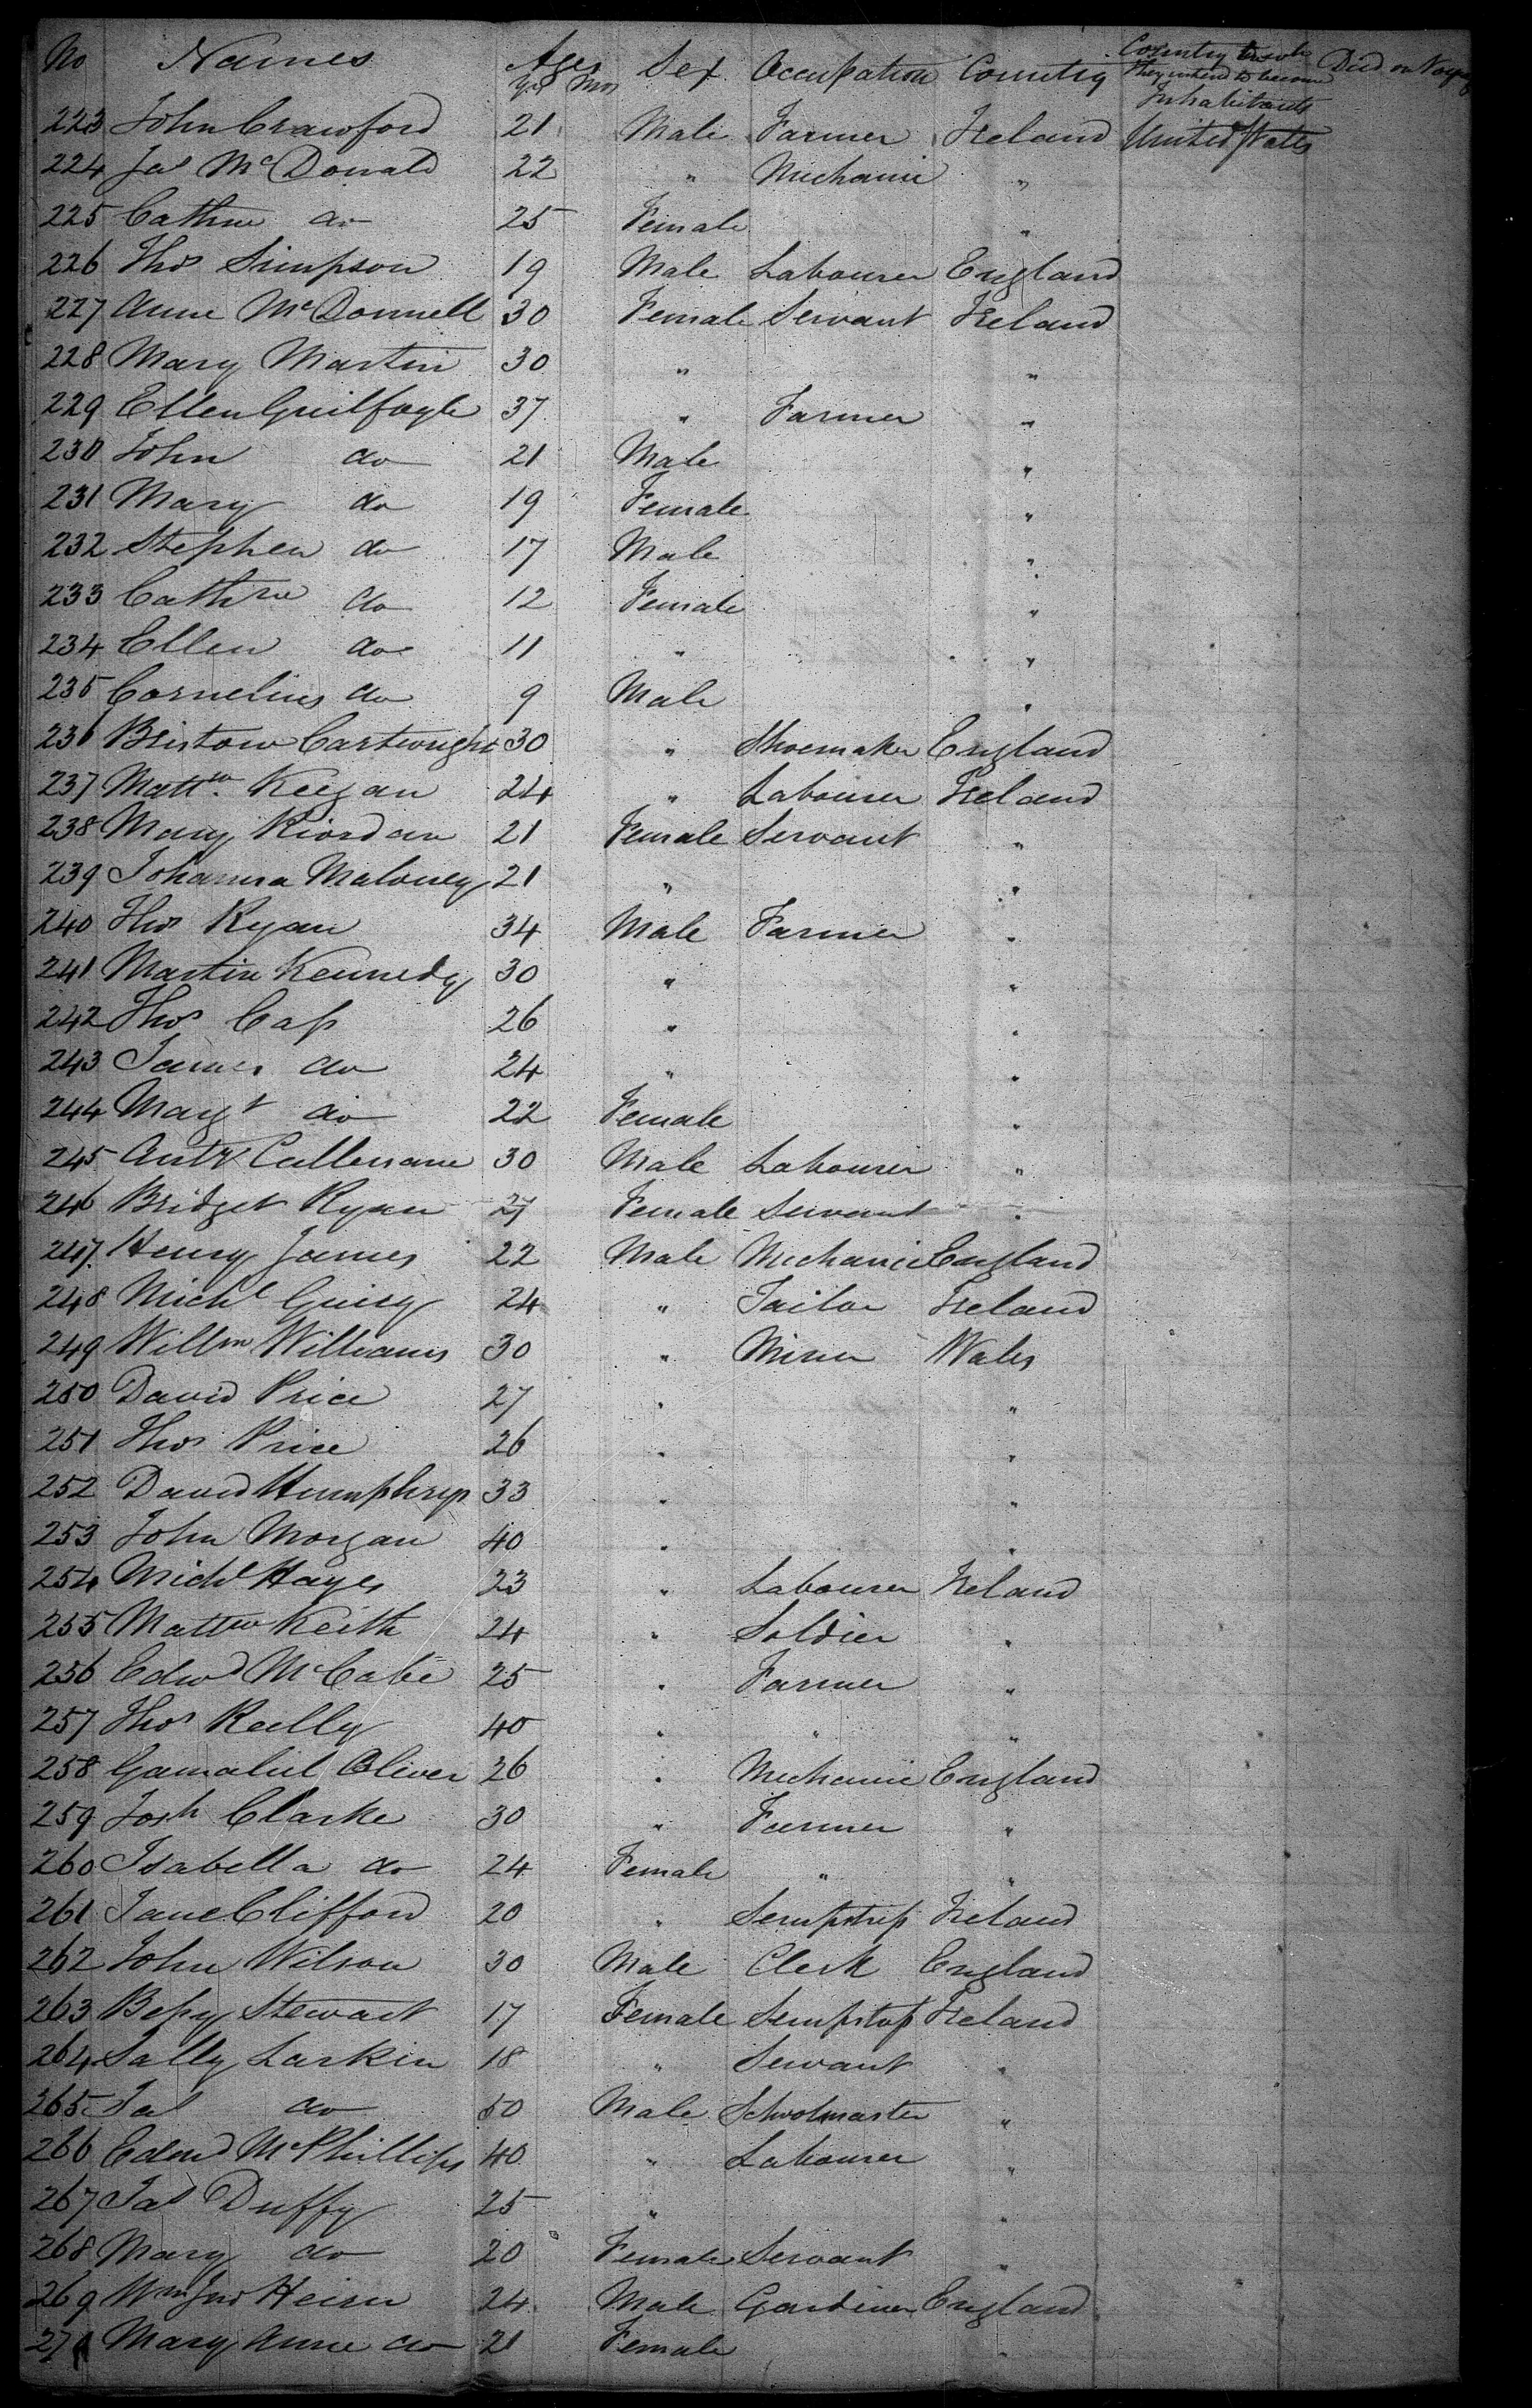 No Names Ages Yrs Mos Sex Occupation Country Country to wh they intend to become Inhabitants Died on Voyage
223 John Crawford 21 Male Farmer Ireland United States
224 Jas McDonald 22 " Mechanic "
225 Cathne do 25 Female "
226 Thos Simpson 19 Male Labourer England
227 Anne McDonnell 30 Female Servant Ireland
228 Mary Martin 30 " "
229 Ellen Guilfoyle 37 " Farmer "
230 John do 21 Male "
231 Mary do 19 Female "
232 Stephen do 17 Male "
233 Cathne do 12 Female "
234 Ellen do 11 " "
235 Cornelius do 9 Male "
236 Bristow Cartwright 30 " Shoemaker England
237 Mattw Keegan 24 " Labourer Ireland
238 Mary Riordan 21 Female Servant "
239 Johanna Maloney 21 " "
240 Thos Ryan 34 Male Farmer "
241 Martin Kennedy 30 " "
242 Thos Cass 26 " "
243 James do 24 " "
244 Margt do 22 Female "
245 Anty Cullenane 30 Male Labourer "
246 Bridget Ryan 27 Female Servant "
247 Henry James 22 Male Mechanic England
248 Michl Guiry 24 " Tailor Ireland
249 Willm Williams 30 " Miner Wales
250 David Price 27 " "
251 Thos Price 26 " "
252 David Humphrys 33 " "
253 John Morgan 40 " "
254 Michl Hayes 23 " Labourer Ireland
255 Mattw Keith 24 " Soldier "
256 Edwd McCabe 25 " Farmer "
257 Thos Reilly 40 " " "
258 Gamaliel Oliver 26 " Mechanic England
259 Josh Clarke 30 " Farmer "
260 Isabella do 24 Female " "
261 Jane Clifford 20 " Sempstress Ireland
262 John Wilson 30 Male Clerk England
263 Betsy Stewart 17 Female Sempstss Ireland
264 Sally Larkin 18 " Servant "
265 Jas do 50 Male Schoolmaster "
266 Edmd McPhillips 40 " Labourer "
267 Jas Duffy 25 " "
268 Mary do 20 Female Servant "
269 Wm Jno 24 Male Gardener England
270 Mary Anne do 21 Female "